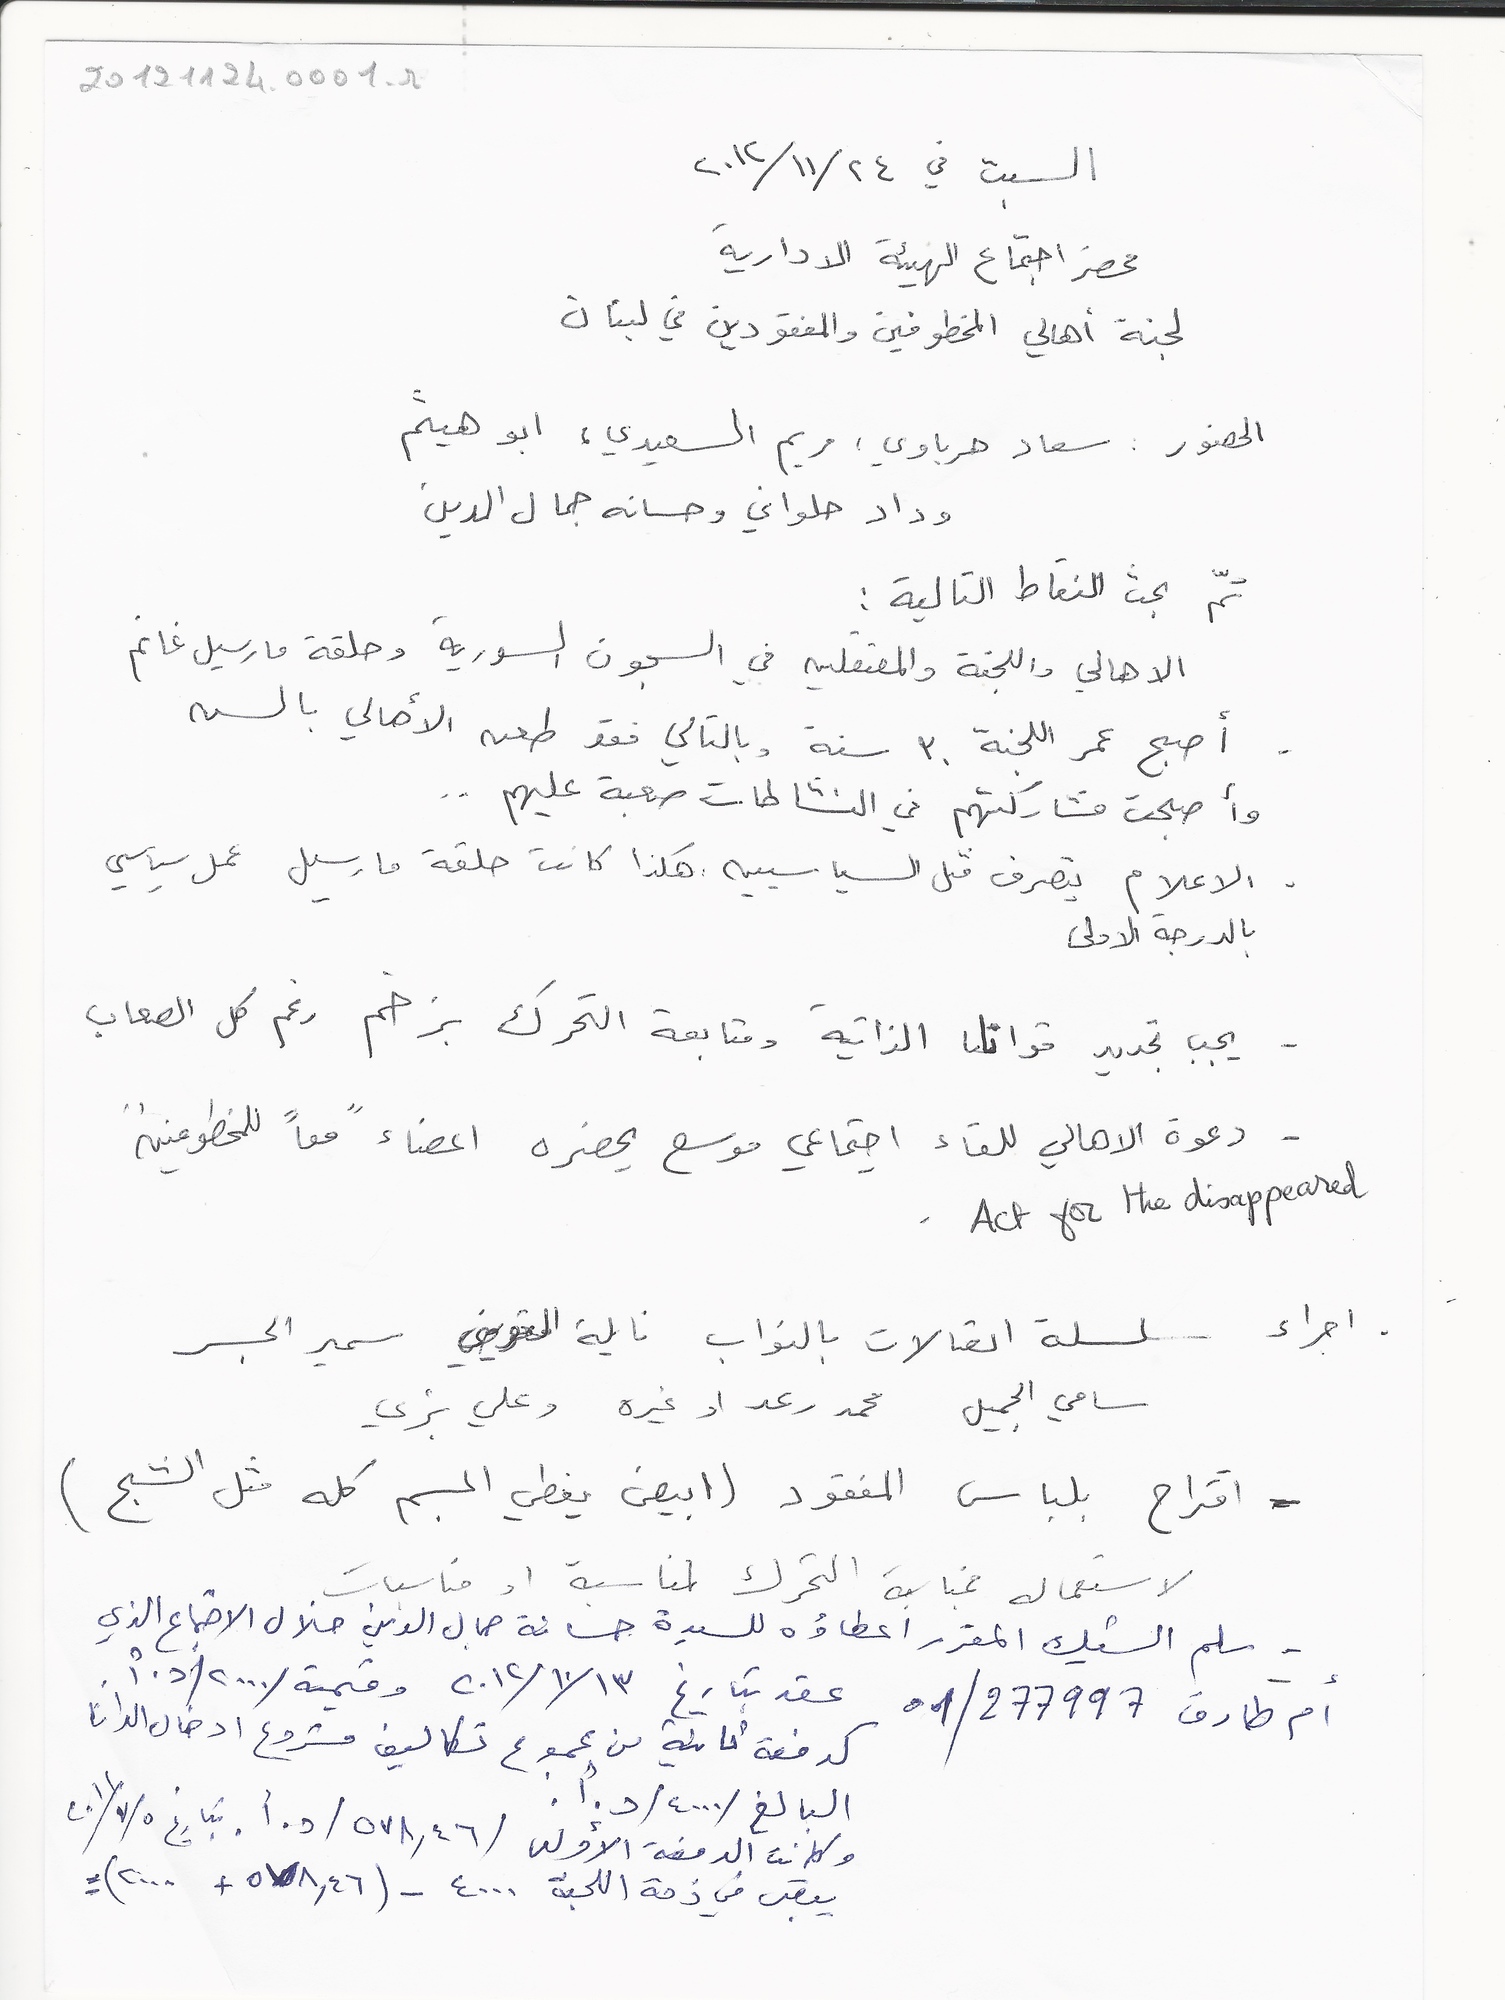 20121124.0001.r
السبت في ٢٤/١١/٢٠١٢
محضر اجتماع الهيئة الادارية
لجنة أهالي المخطوفين والمفقودين في لبنان
الحضور : سعاد هرباوي، مريم السعيدي، ابو هيثم
وداد حلواني وحسانه جمال الدين
تمّ بحث النقاط التالية :
الاهالي واللجنة والمعتقلين في السجون السورية وحلقة مارسيل غانم
- أصبح عمر اللجنة ٣٠ سنة وبالتالي فقد طعن الأهالي بالسن
وأصبحت مشاركتهم في النشاطات صعبة عليهم ..
- الاعلام يتصرف مثل السياسيين. هكذا كانت حلقة مارسيل عمل سياسي
بالدرجة الاولى
- يجب تجديد قواتنا الذاتية ومتابعة التحرك بزخم رغم كل الصعاب
- دعوة الاهالي للقاء اجتماعي موسع يحضره اعضاء "معاً للمخطوفين"
Act for the disappeared .
- اجراء سلسلة اتصالات بالنواب نايلة سمير الجسر
سامي الجميل محمد رعد او غيره وعلي بزي
- اقتراح بلباس المفقود (ابيض يغطي الجسم كله مثل الشبح)
لاستعماله التحرك لمناسبة او مناسبات
- سلم الشيك المقرر اعطاؤه للسيدة حسانة جمال الدين خلال الاجتماع الذي
عقد بتاريخ ١٣/١٠/٢٠١٢ وقيمته /٢٠٠٠/د.أ.
أم طارق 01/277997
كدفعة ثانية من مجموع تكاليف مشروع ادخال الداتا
البالغ /٤٠٠٠/د.أ.
وكانت الدفعة الأولى /٥٧٨,٤٦/د.أ. بتاريخ ٥/٧/
يبقى في ذمة اللجنة ٤٠٠٠ - (٥٧٨,٤٦ + ٢٠٠٠) =